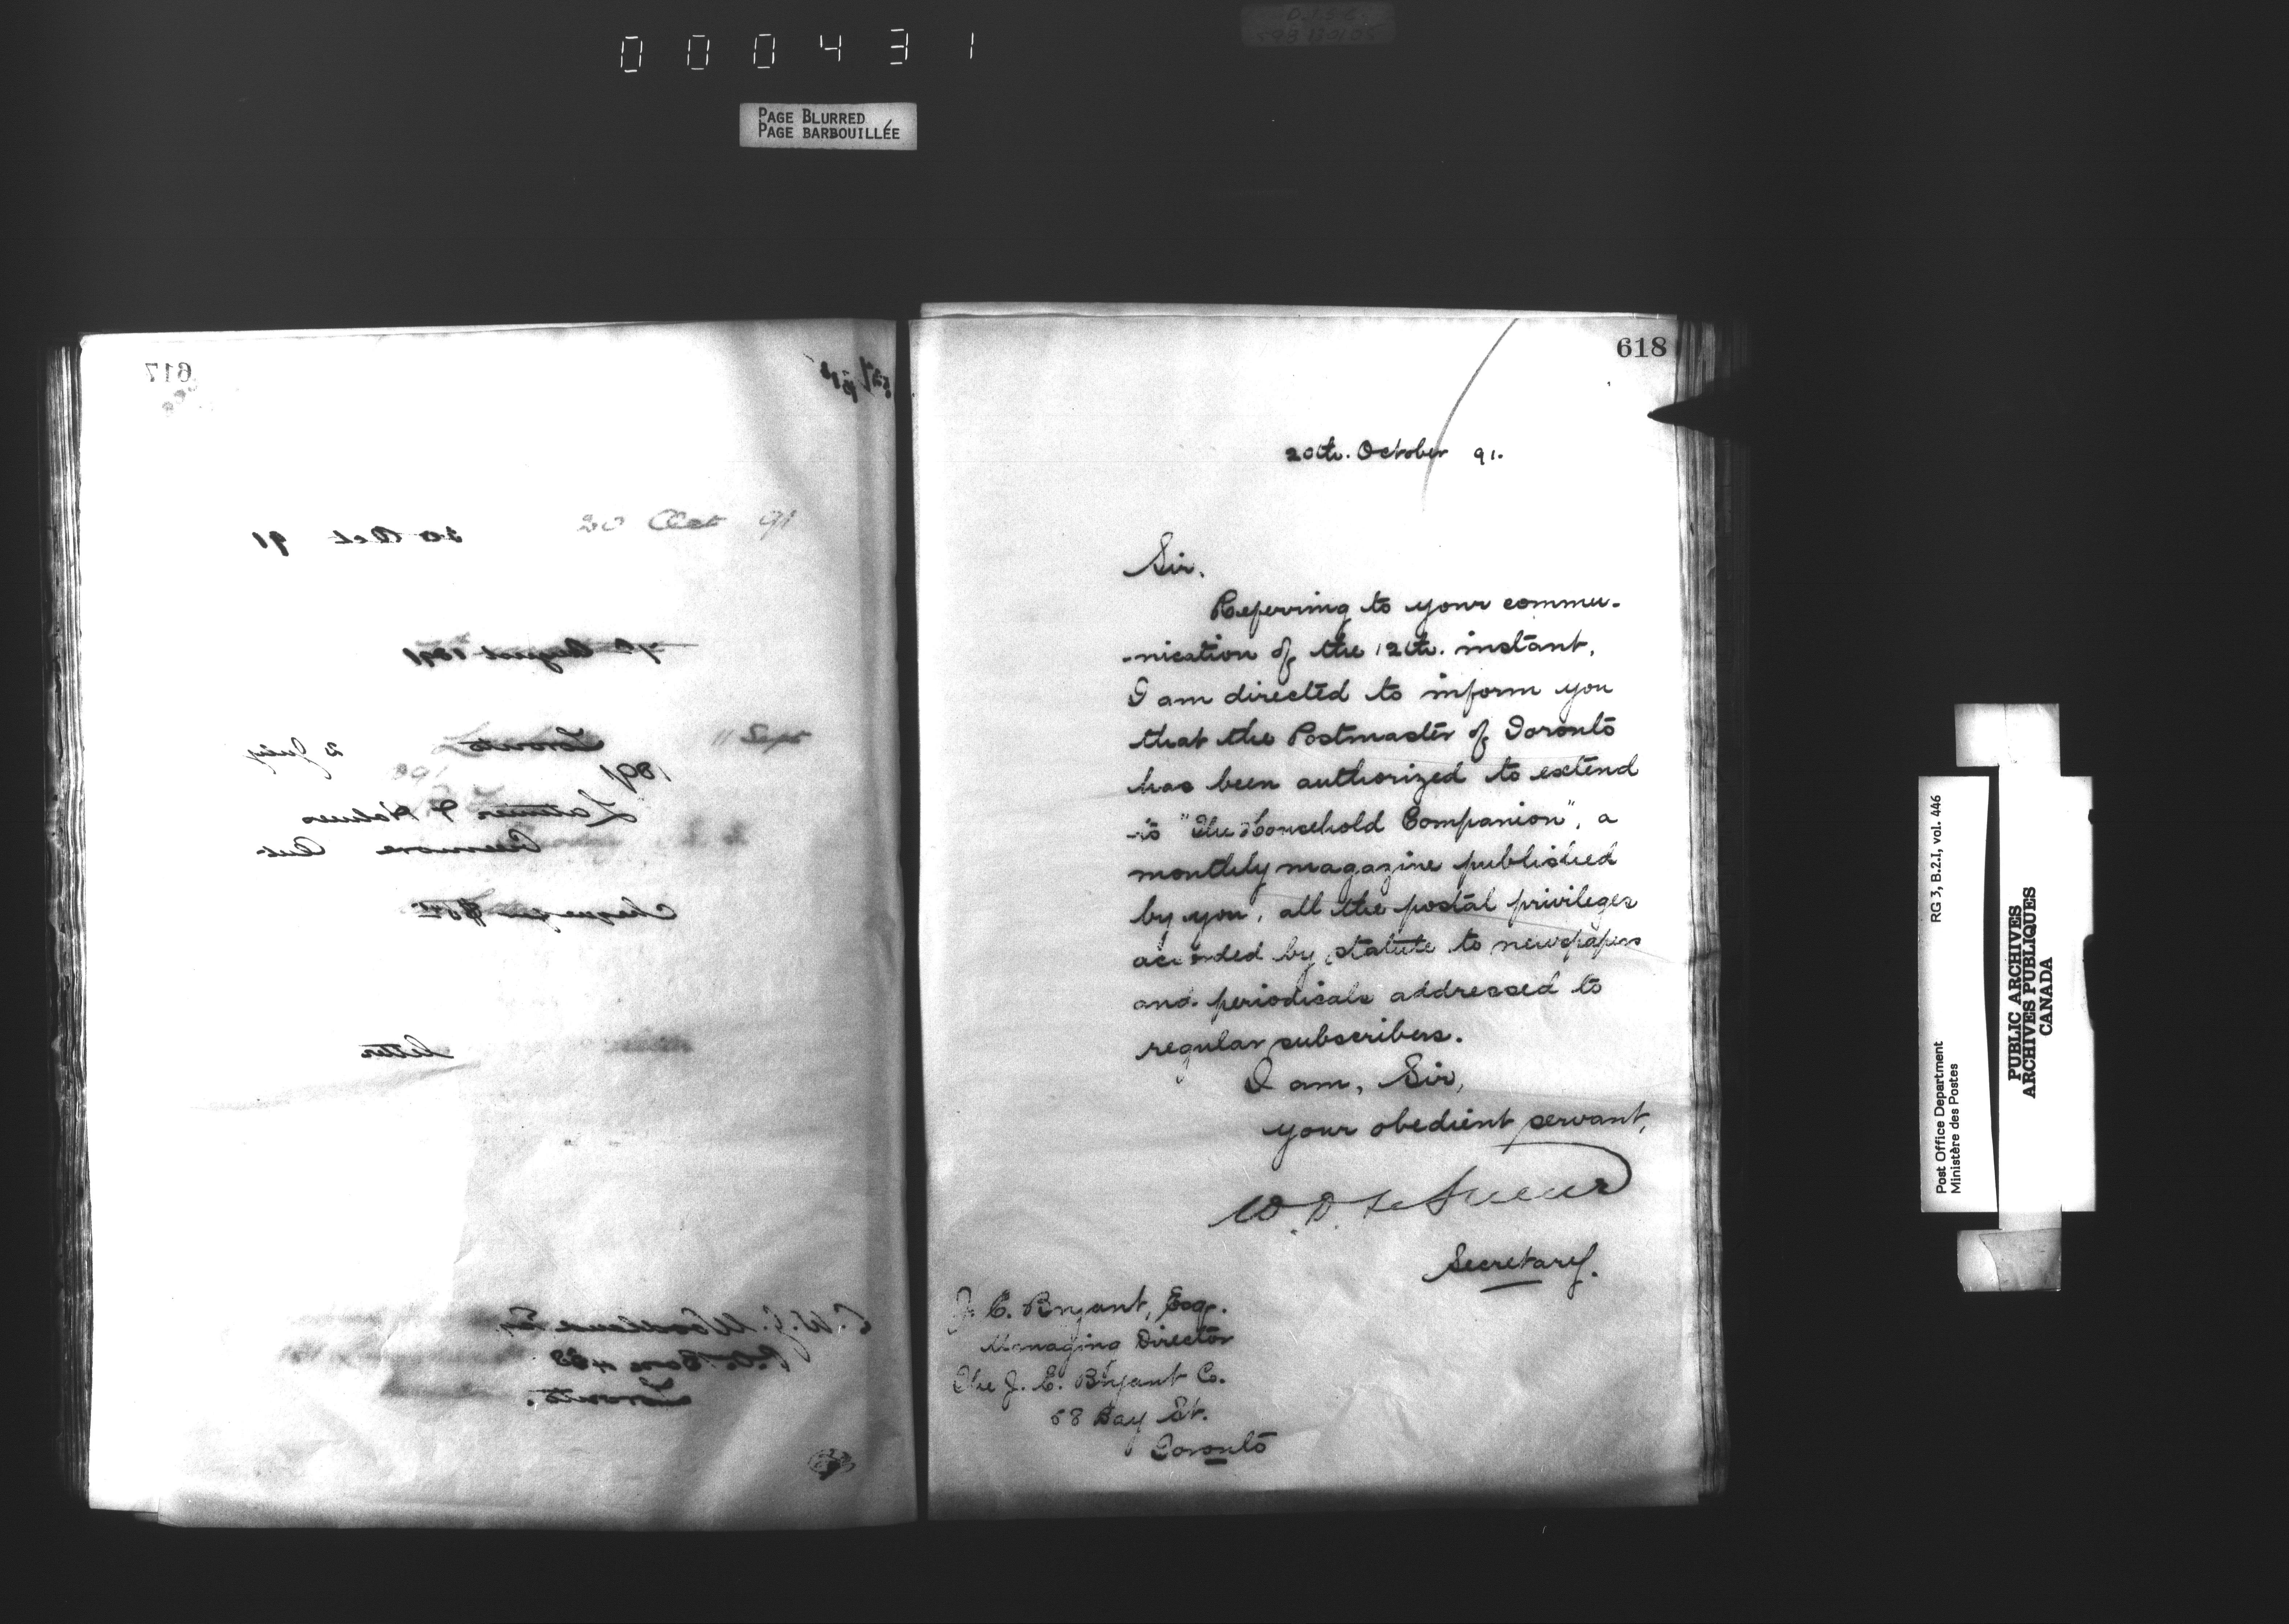 000431
PAGE BLURRED
PAGE BARBOUILLÉE
617
20 Oct 91
20 Oct 91
August 1891
Toronto 2 July
11 Sept
1891
Latimer & Holmes
Creemore Ont
Cheque for
letter
P.O. Box 483
Toronto.
618
20th. October 91.
Sir,
Referring to your commu-
-nication of the 12th. instant,
I am directed to inform you
that the Postmaster of Toronto
has been authorized to extend
to "The Household Companion", a
monthly magazine published
by you, all the postal privileges
accorded by statute to newspapers
and periodicals addressed to
regular subscribers.
I am, Sir,
your obedient servant,
W. D. LeSueur
Secretary.
J. E. Bryant, Esq.
Managing Director
The J. E. Bryant Co.
58 Bay St.
Toronto
Post Office Department
Ministère des Postes
RG 3, B.2.I, vol. 446
PUBLIC ARCHIVES
ARCHIVES PUBLIQUES
CANADA